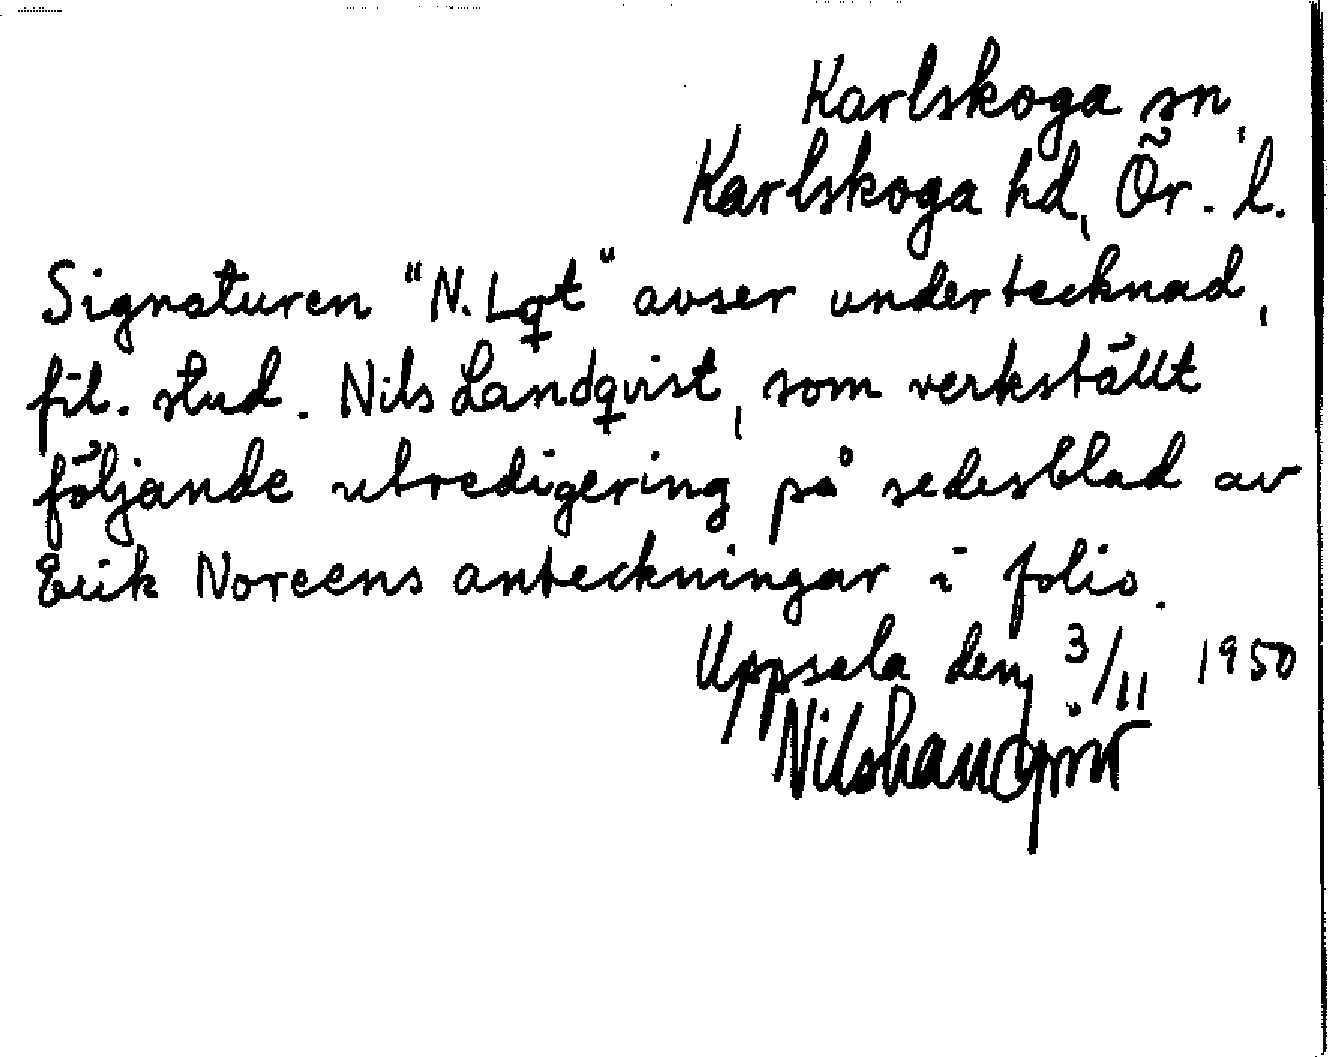 Karlskoga sn,
Karlskoga hd, Ör. l.
Signaturen "N. Lqt" avser undertecknad,
fil. stud. Nils Landqvist, som verkställt
följande utredigering på sedesblad av
Erik Noreens anteckningar i folio.
Uppsala den 3/11 1950
Nils Landqvist